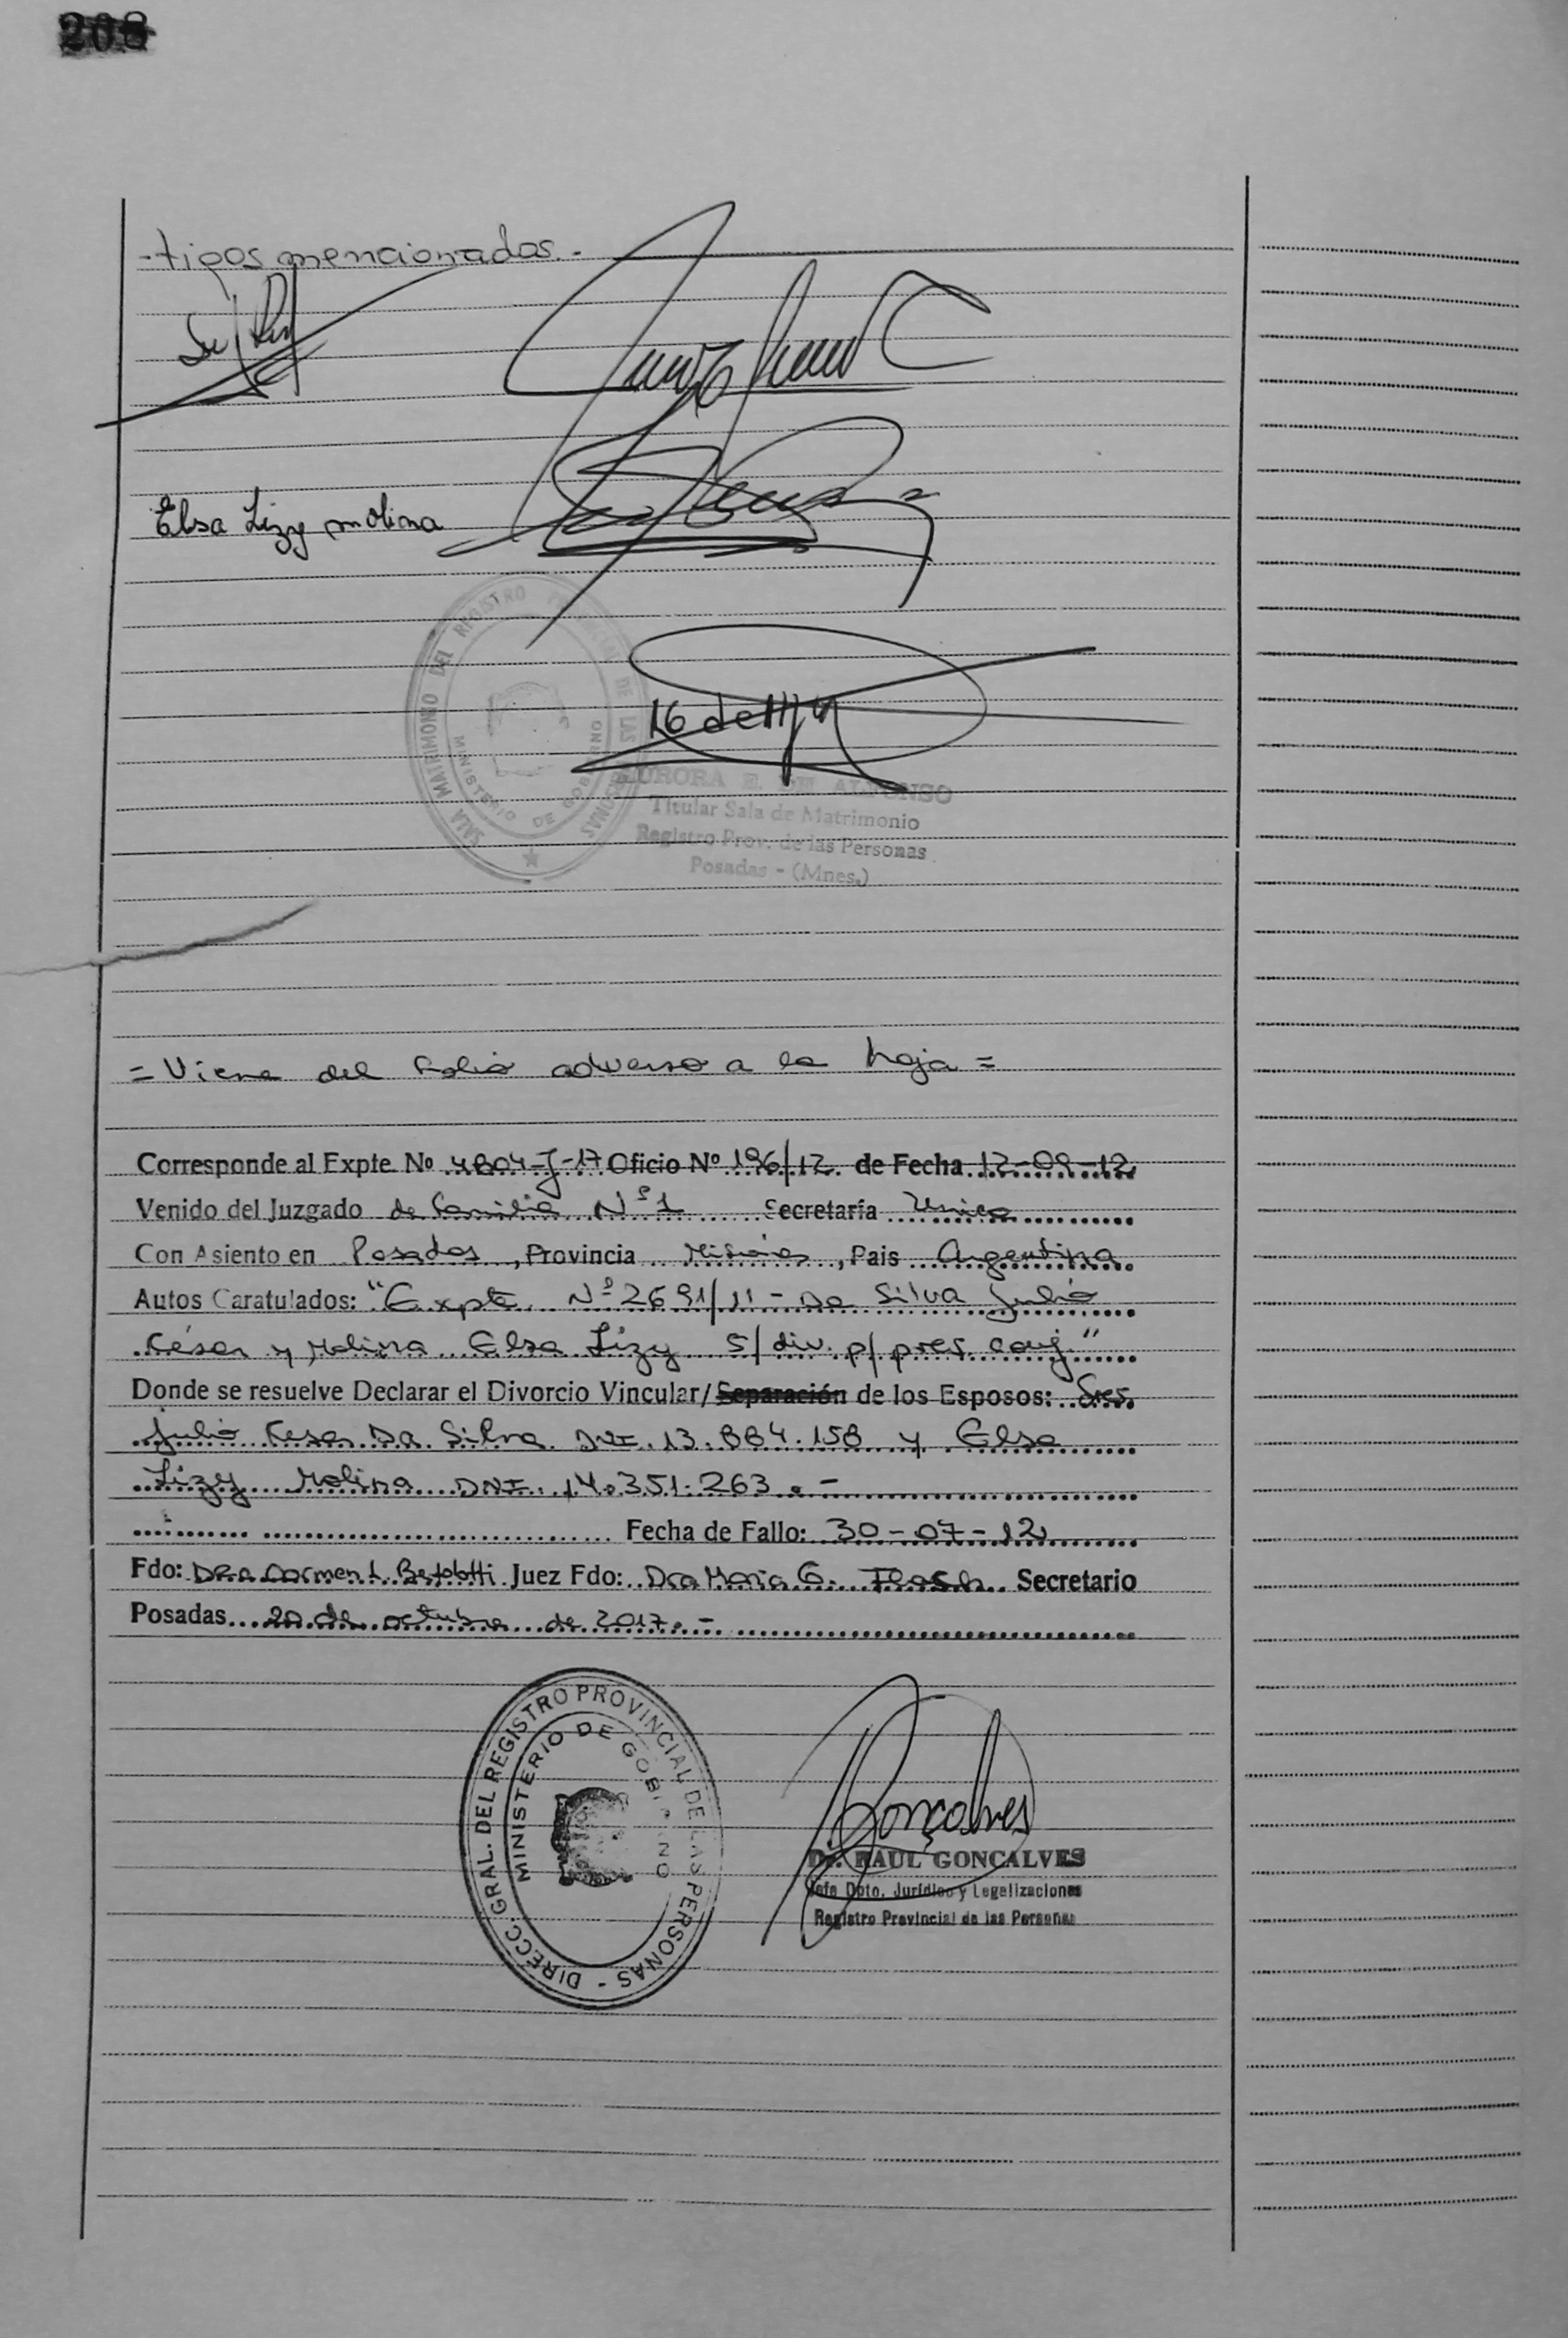 208
-tigos mencionados.-
Elsa Lizy molina
SALA MATRIMONIO DEL REGISTRO DE LAS PERSONAS
MINISTERIO DE GOBIERNO
16 de
AURORA E. DE ALFONSO
Titular Sala de Matrimonio
Registro Prov. de las Personas
Posadas - (Mnes.)
= Viene del folio adverso a la hoja =
Corresponde al Expte Nº 4804-J-17 Oficio Nº 196/12 de Fecha 12-09-12
Venido del Juzgado de Familia Nº 1 Secretaría Unica
Con Asiento en Posadas, Provincia Misiones, Pais Argentina
Autos Caratulados: "Expte Nº 2691/11 - Da Silva Julio
César y Molina Elsa Lizy S/ div. p/ pres. conj."
Donde se resuelve Declarar el Divorcio Vincular/Separación de los Esposos: Sres.
Julio Cesar Da Silva DNI. 13.884.158 y Elsa
Lizy Molina DNI. 14.351.263.-
Fecha de Fallo: 30-07-12
Fdo: DRA Carmen L. Bertolotti Juez Fdo: Dra Maria G. Secretario
Posadas 20 de octubre de 2017.-
DIRECC. GRAL. DEL REGISTRO PROVINCIAL DE LAS PERSONAS -
MINISTERIO DE GOBIERNO
Goncalves
Dr. RAUL GONCALVES
Jefe Dpto. Jurídico y Legalizaciones
Registro Provincial de las Personas